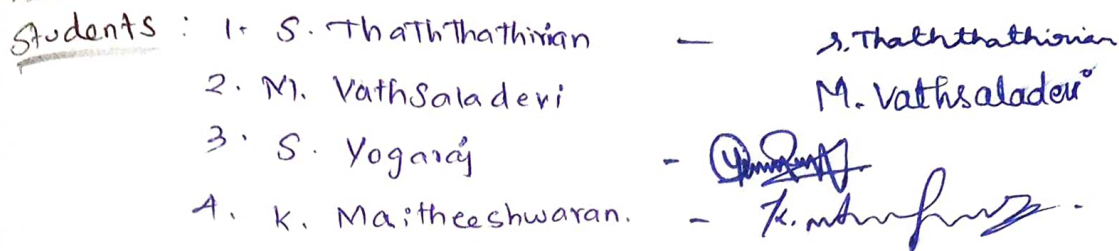 Students : 1. S. Thaththathirian — S. Thaththathirian
2. M. Vathsaladevi M. Vathsaladevi
3. S. Yogaraj -
4. K. Maitheeshwaran. - K.